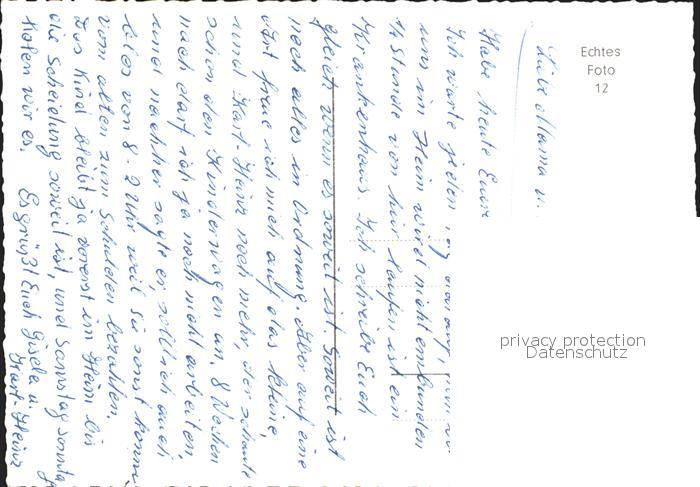 Echtes
Foto
12
privacy protection
Datenschutz
Liebe Mama u.
Habe heute Eure
Ich warte jeden
uns im Heim wird nicht entbunden
½ Stunde von hier laufen ist ein
Krankenhaus. Ich schreibe Euch
gleich wenn es soweit ist. Soweit ist
noch alles in Ordnung. Aber auf eine
Art freue ich mich auf das kleine,
und Karl-Heinz noch mehr, der schaute
schon den Kinderwagen an. 8 Wochen
nach darf ich ja noch nicht arbeiten,
und nachher sagte er, soll ich auch
blos von 8-2 Uhr weil sie sonst
vom alten zum Schulden bezahlen.
Das Kind bleibt ja vorerst im Heim bis
die Scheidung soweit ist, und Samstag Sonntag
holen wir es. Es grüßt Euch Gisela u.
Karl-Heinz